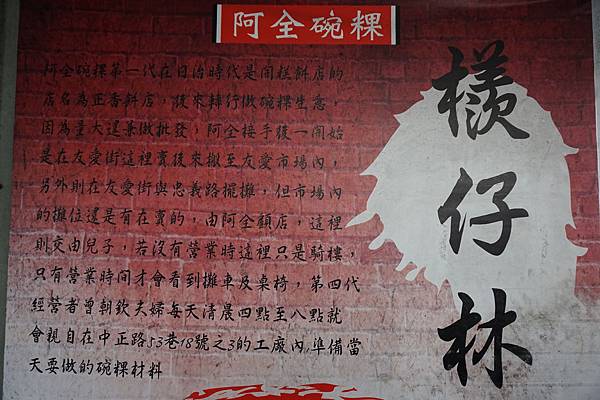 阿全碗粿
檨仔林
阿全碗粿第一代在日治時代是開糕餅店的
店名為正香餅店，後來轉行做碗粿生意，
因為量大還兼做批發，阿全接手後一開始
是在友愛街這裡賣後來搬至友愛市場內，
另外則在友愛街與忠義路擺攤，但市場內
的攤位還是有在賣的，由阿全顧店，這裡
則交由兒子，若沒有營業時這裡只是騎樓，
只有營業時間才會看到攤車及桌椅，第四代
經營者曾朝欽夫婦每天清晨四點至八點就
會親自在中正路53巷18號之3的工廠內,準備當
天要做的碗粿材料